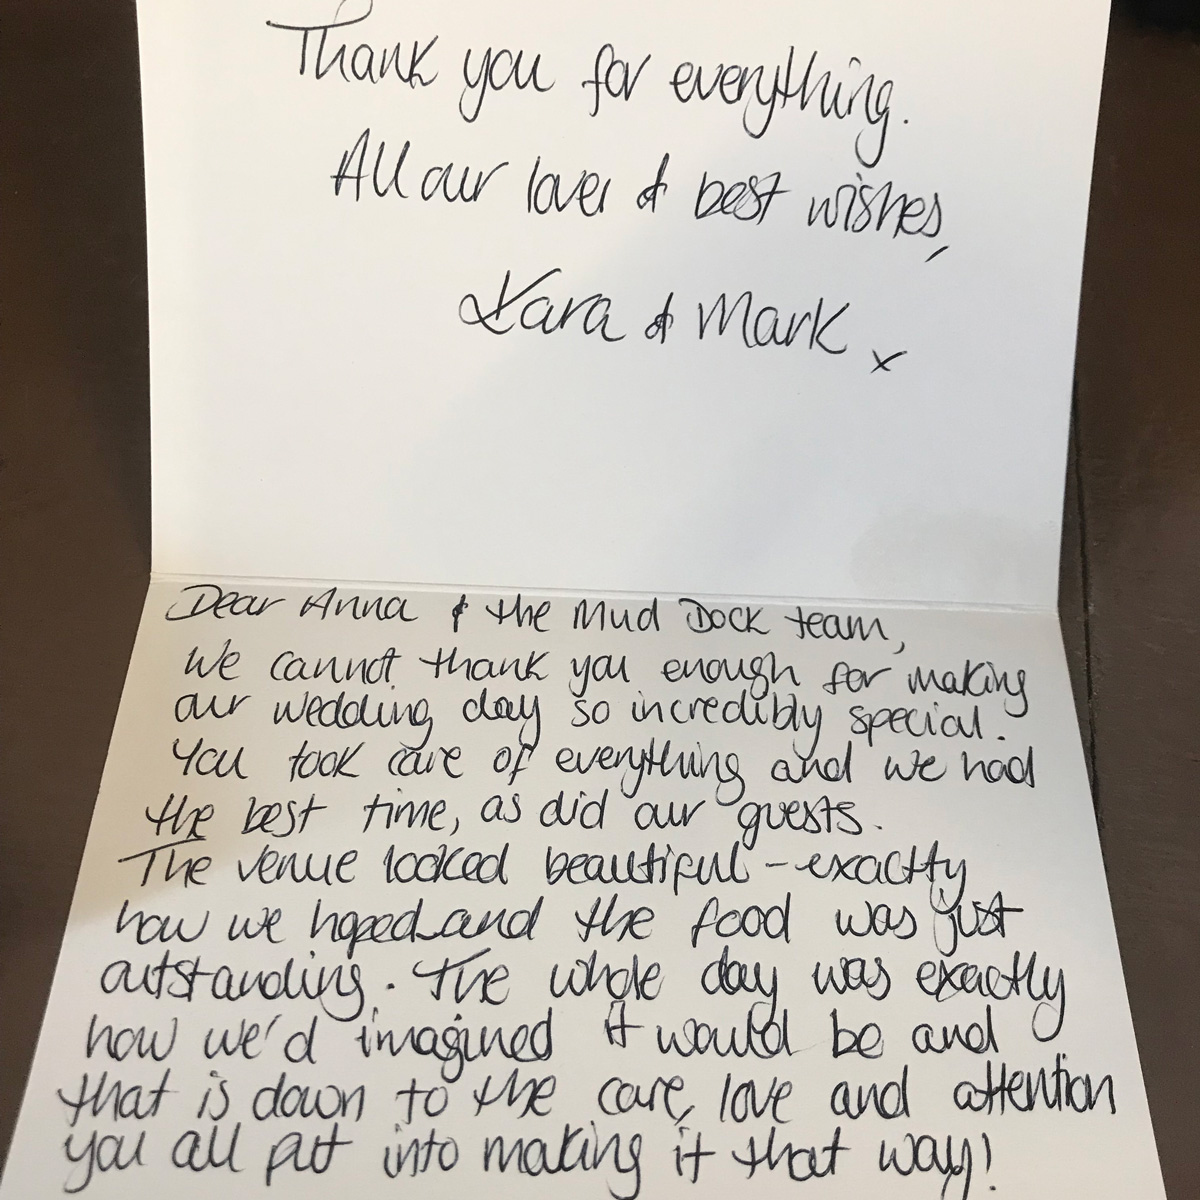 Thank you for everything.
All our love & best wishes,
Kara & Mark x
Dear Anna & the Mud Dock team,
We cannot thank you enough for making
our wedding day so incredibly special.
You took care of everything and we had
the best time, as did our guests.
The venue looked beautiful - exactly
how we hoped and the food was just
outstanding. The whole day was exactly
how we'd imagined it would be and
that is down to the care, love and attention
you all put into making it that way!